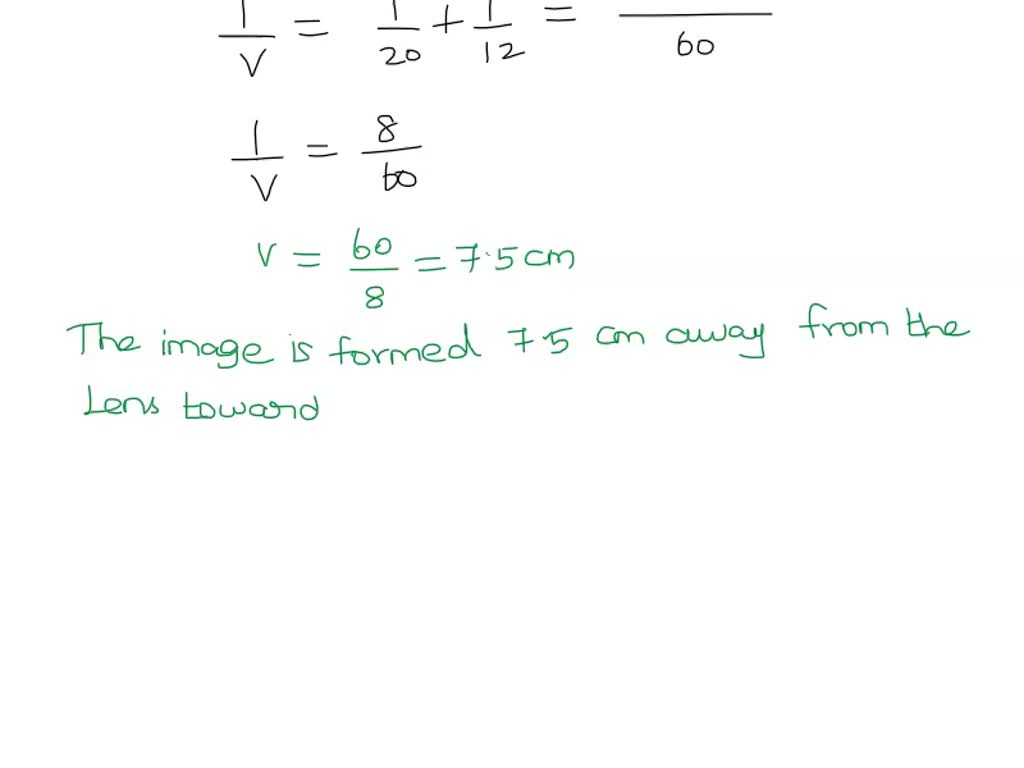 1/V = 1/20 + 1/12 = /60
1/V = 8/60
V = 60/8 = 7.5 cm
The image is formed 7.5 cm away from the
Lens toward